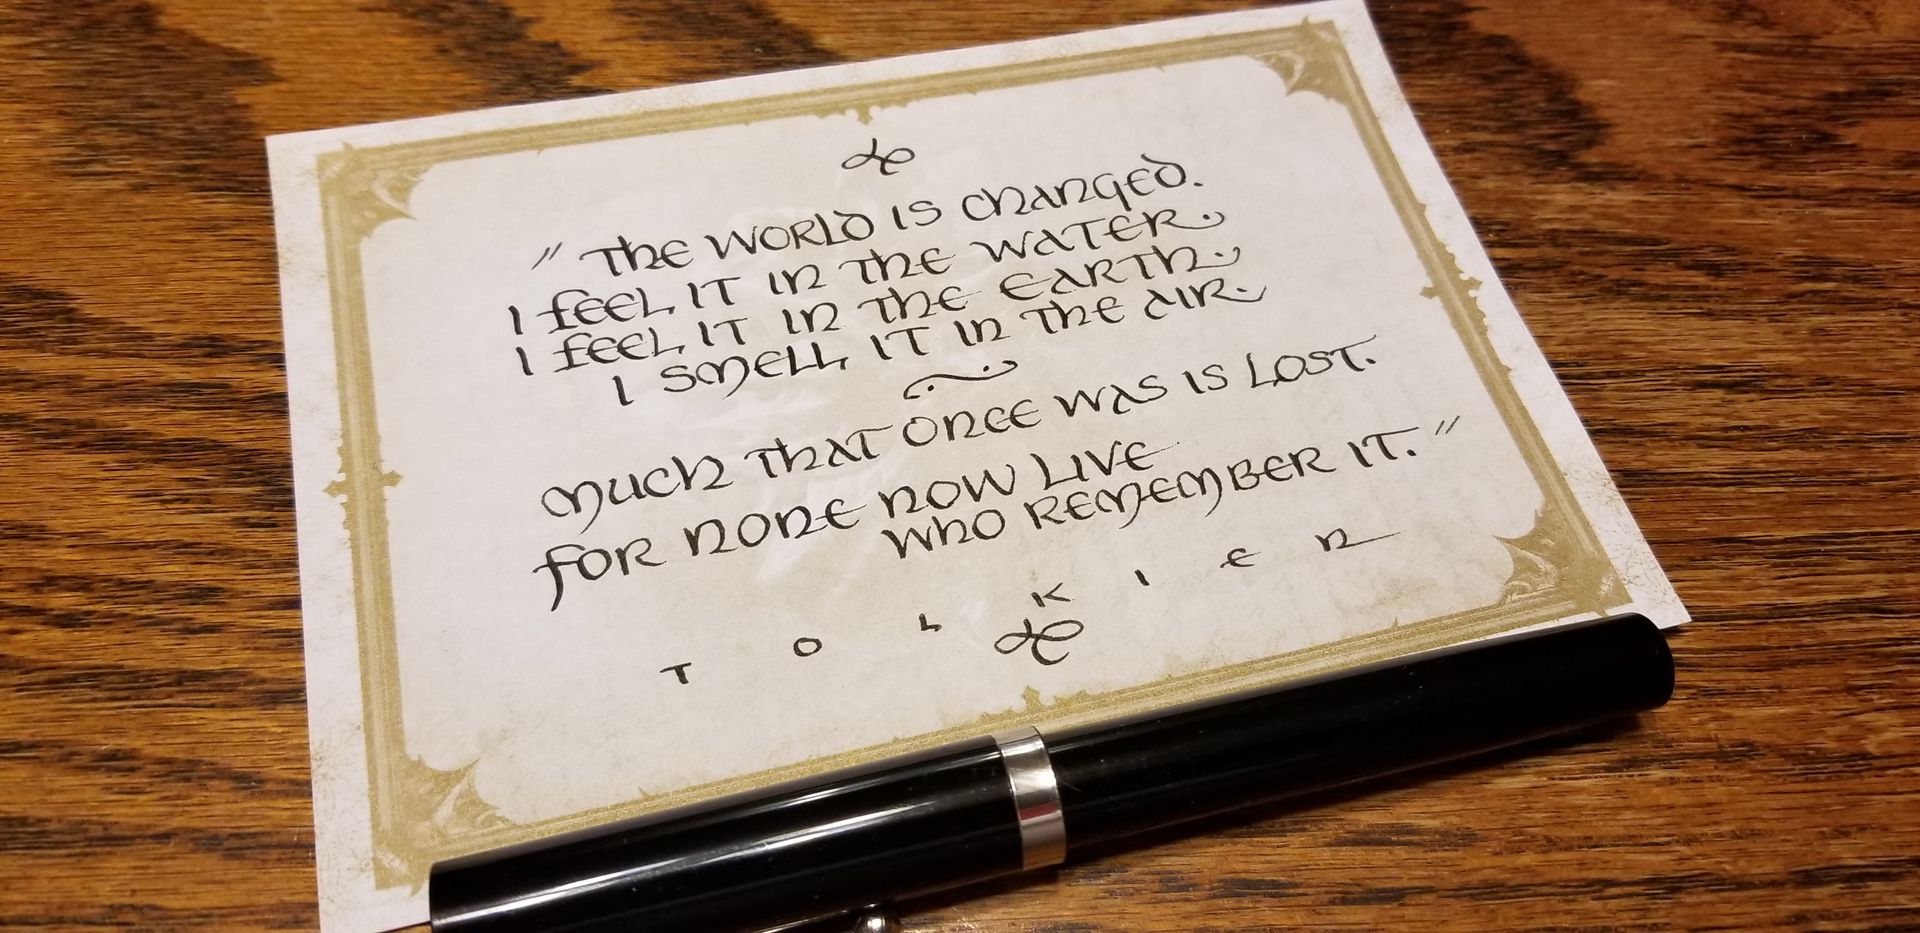 "The world is changed.
I feel it in the water.
I feel it in the earth.
I smell it in the air.
Much that once was is lost.
For none now live
who remember it."
Tolkien